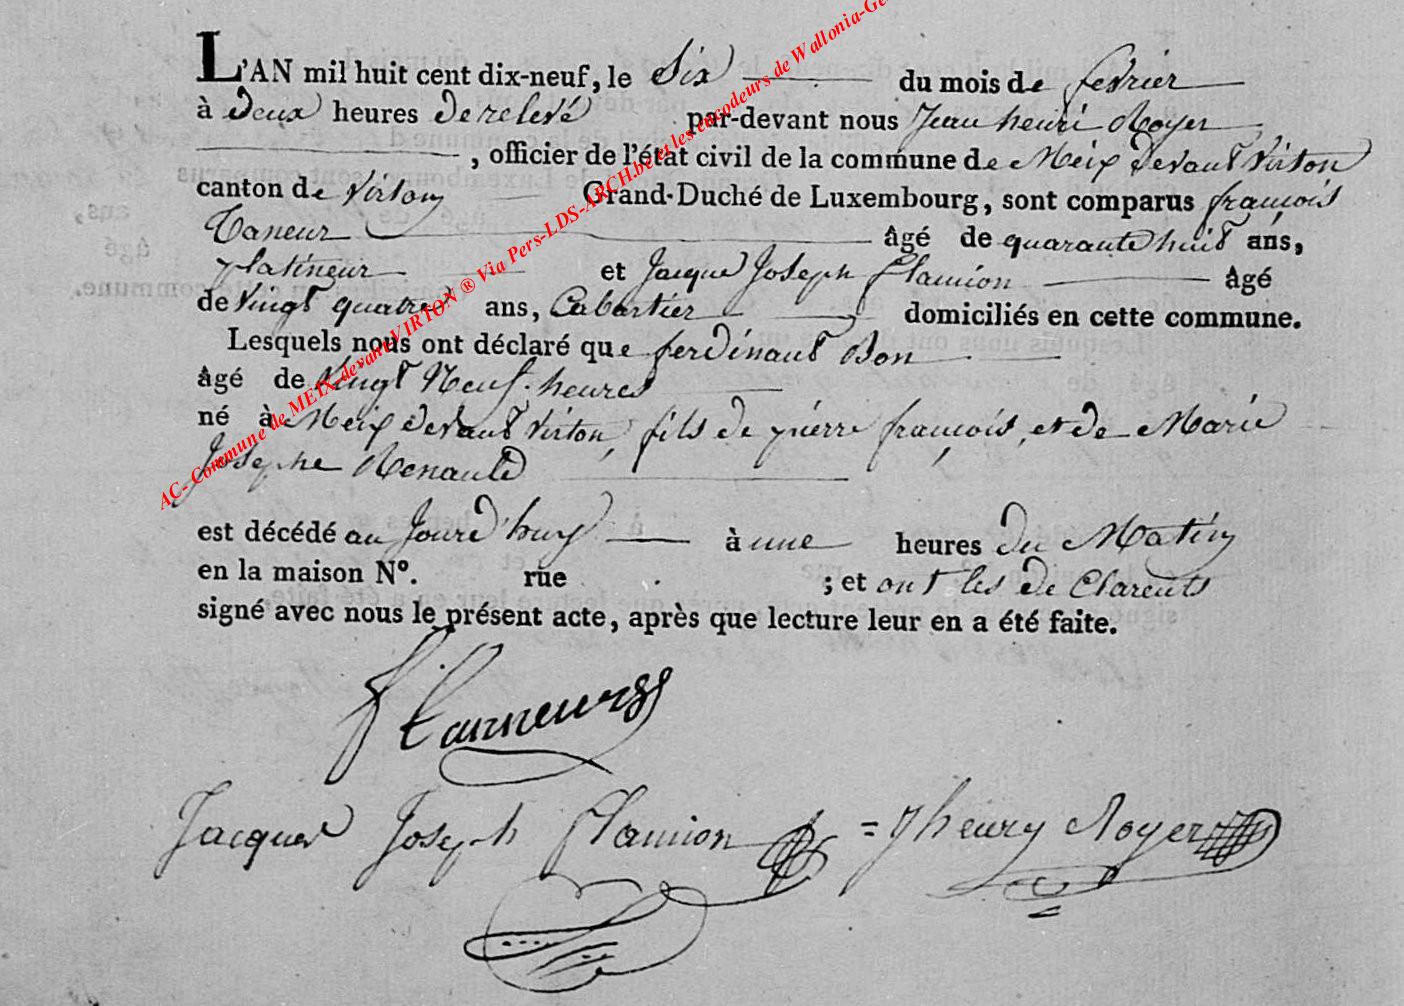 L'AN mil huit cent dix-neuf, le Six du mois de fevrier
à deux heures de relevé par-devant nous Jean henri Royer
, officier de l'état civil de la commune de Meix devant Virton
canton de Virton Grand-Duché de Luxembourg, sont comparus françois
Taneur âgé de quarante huit ans,
platineur et Jacque Joseph flamion âgé
de vingt quatre ans, Cabartier domiciliés en cette commune.
Lesquels nous ont déclaré que ferdinant Bon
âgé de vingt Neuf heures
né à Meix devant Virton, fils de pierre françois, et de Marie
Josephe Renauld
est décédé au Jourd'huy à une heures du Matin
en la maison N°. rue ; et ont les de Clarents
signé avec nous le présent acte, après que lecture leur en a été faite.
f tanneur
Jacques Joseph flamion = J henry Royer
AC- Commune de MEIX-devant-VIRTON ® Via Pers-LDS-ARCH.be et les encodeurs de Wallonia-Ge